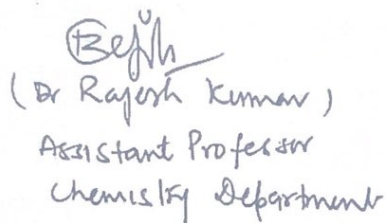 (Dr Rajesh Kumar)
Assistant Professor
Chemistry Department